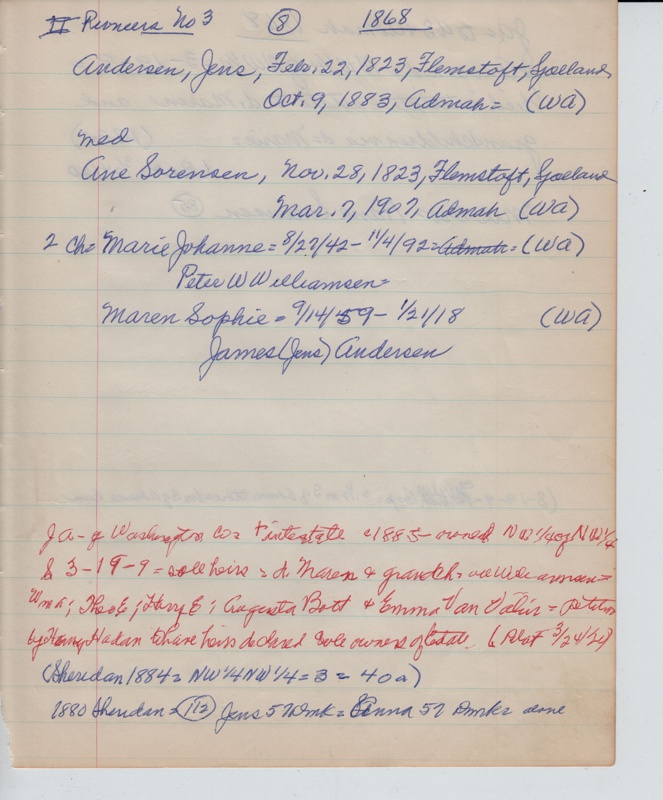 II Pioneers No 3 (8) 1868
Andersen, Jens, Febr. 22, 1823, Flemstoft, Sjoelland
Oct. 9, 1883, Admah = (WA)
med
Ane Sorensen, Nov. 28, 1823, Flemstoft, Sjoelland
Mar. 7, 1907, Admah (WA)
2 ch = Marie Johanne = 8/27/42 - 11/4/92 = Admah = (WA)
Peter W Williamsen =
Maren Sophie = 9/14/59 - 1/21/18 (WA)
James (Jens) Andersen
J A - of Washington Co = + intestate 1883 - owned NW 1/4 of NW 1/4
S 3-19-9 = sole heirs = d. Maren + grandch =
Wm A; ; Harry E; Augusta Bott + Emma Van = Petition
by Hadan to have heirs declared sole owners of Estate. (Pilot 3/24/)
(Sheridan 1884 = NW 1/4 NW 1/4 = 3 = 40 a)
1880 Sheridan = (112) Jens 57 Dmk = Anna 57 Dmk = alone